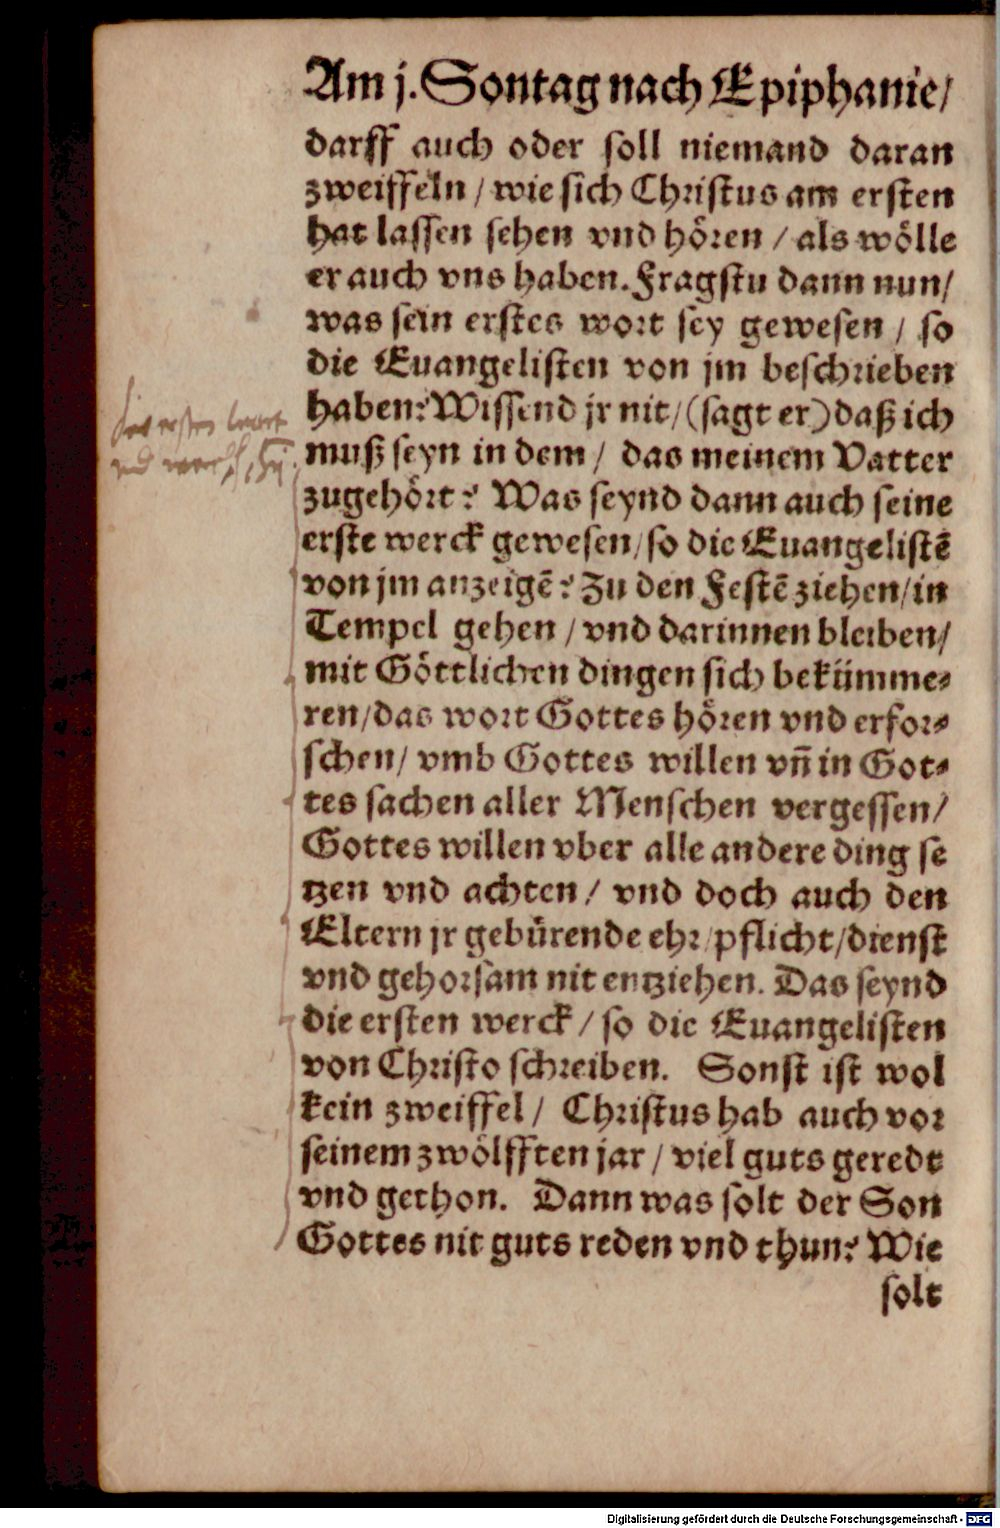 Am j. Sontag nach Epiphanie/
darff auch oder soll niemand daran
zweiffeln / wie sich Christus am ersten
hat lassen sehen vnd hören / als wölle
er auch vns haben. Fragstu dann nun/
was sein erstes wort sey gewesen / so
die Euangelisten von jm beschrieben
haben? Wissend jr nit/(sagt er) daß ich
muß seyn in dem / das meinem Vatter
zugehört? Was seynd dann auch seine
erste werck gewesen/so die Euangelistē
von jm anzeigē? Zu den Festē ziehen/in
Tempel gehen / vnd darinnen bleiben/
mit Göttlichen dingen sich bekümme-
ren/das wort Gottes hören vnd erfor-
schen/ vmb Gottes willen vñ in Got-
tes sachen aller Menschen vergessen/
Gottes willen vber alle andere ding se
tzen vnd achten / vnd doch auch den
Eltern jr gebürende ehr/pflicht/dienst
vnd gehorsam nit entziehen. Das seynd
die ersten werck / so die Euangelisten
von Christo schreiben. Sonst ist wol
kein zweiffel / Christus hab auch vor
seinem zwölfften jar / viel guts geredt
vnd gethon. Dann was solt der Son
Gottes nit guts reden vnd thun? Wie
solt
ersten
vnd
Digitalisierung gefördert durch die Deutsche Forschungsgemeinschaft - DFG